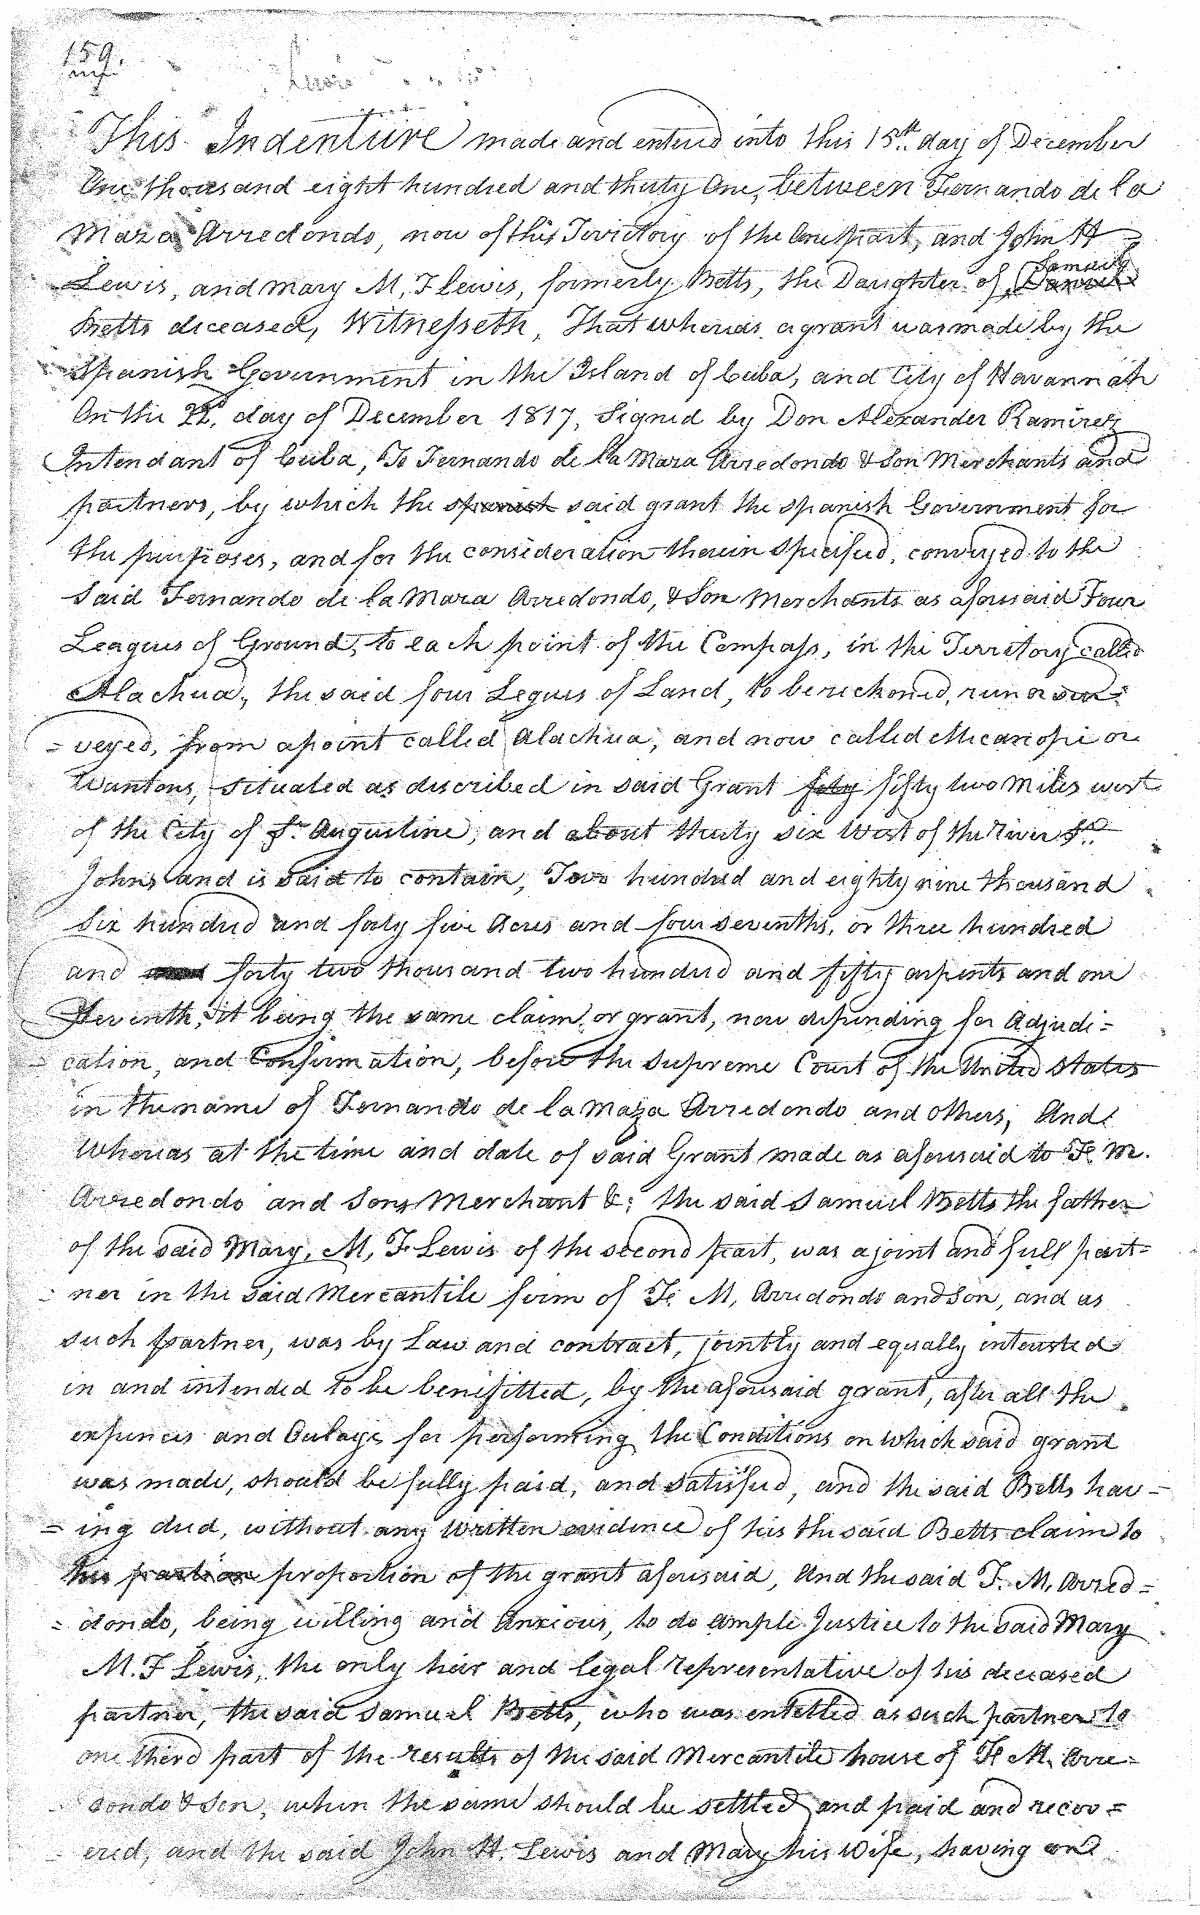 159.
This Indenture made and entered into this 15th day of December
One thousand eight hundred and thirty One, between Fernando de la
Maza Arredondo, now of this Territory of the One part, and John H
Lewis, and Mary M, F Lewis, formerly Betts, the Daughter of Samuel
Betts diceased, Witnesseth, That whereas a grant was made by the
Spanish Government in the Island of Cuba, and City of Havannah
On the 22d, day of December 1817, Signed by Don Alexander Ramirez
Intendant of Cuba, To Fernando de la Maza Arredondo & Son Merchants and
partners, by which the spanish said grant the Spanish Government for
the purposes, and for the consideration therein Specified, conveyed to the
Said Fernando de la Maza Arredondo, & Son Merchants as aforesaid Four
Leagues of Ground, to each point of the Compass, in the Territory called
Alachua, the said four Legues of Land, to be reckoned, run or sur=
=veyed, from a point called Alachua, and now called Micanopi or
Wantons, situated as discribed in said Grant fifty two Miles west
of the City of St Augustine, and about thirty six West of the River St.
Johns and is said to contain, Two hundred and eighty nine thousand
Six hundred and forty five Acres and four sevenths, or three hundred
and forty two thousand two hundred and fifty arpents and one
Seventh, it being the same claim or grant, now depending for Adjudi=
cation, and Confirmation, before the Supreme Court of the United States
in the name of Fernando de la Maza Arredondo and others, And
Whereas at the time and date of said Grant made as aforesaid to F. M.
Arredondo and Sons Merchant &; the said Samuel Betts the father
of the said Mary, M, F Lewis of the second part, was a joint and full part=
ner in the said Mercantile firm of F. M, Arredondo and Son, and as
such partner, was by Law and contract, jointly and equally intersted
in and intended to be benifitted, by the aforesaid grant, after all the
expences and Outlays for performing the Conditions on which said grant
was made, should be fully paid, and satisfied, and the said Betts hav=
=ing died, without any written evidence of his the said Betts claim to
his portion proportion of the grant aforesaid, And the said F. M, Arred=
=dondo, being willing and Anxious, to do ample Justice to the said Mary
M. F Lewis, the only heir and legal representative of his deceased
partner, the said Samuel Betts, who was entitled as such partner to
one third part of the results of the said Mercantile house of F. M. Arre=
dondo & Son, when the same should be settled and paid and recov=
ered, and the said John H. Lewis and Mary his wife, having and